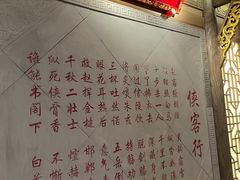 俠客行
赵客缦胡缨
银鞍照白马
十步杀一人 千里不留
事了拂衣去 深藏身
闲过信陵饮 脱剑膝
将炙啖朱亥 持觞劝
三杯吐然诺 五岳倒
眼花耳热后 意气
救赵挥金槌 邯郸
千秋二壮士 烜赫
纵死侠骨香 不惭
谁能书阁下 白首